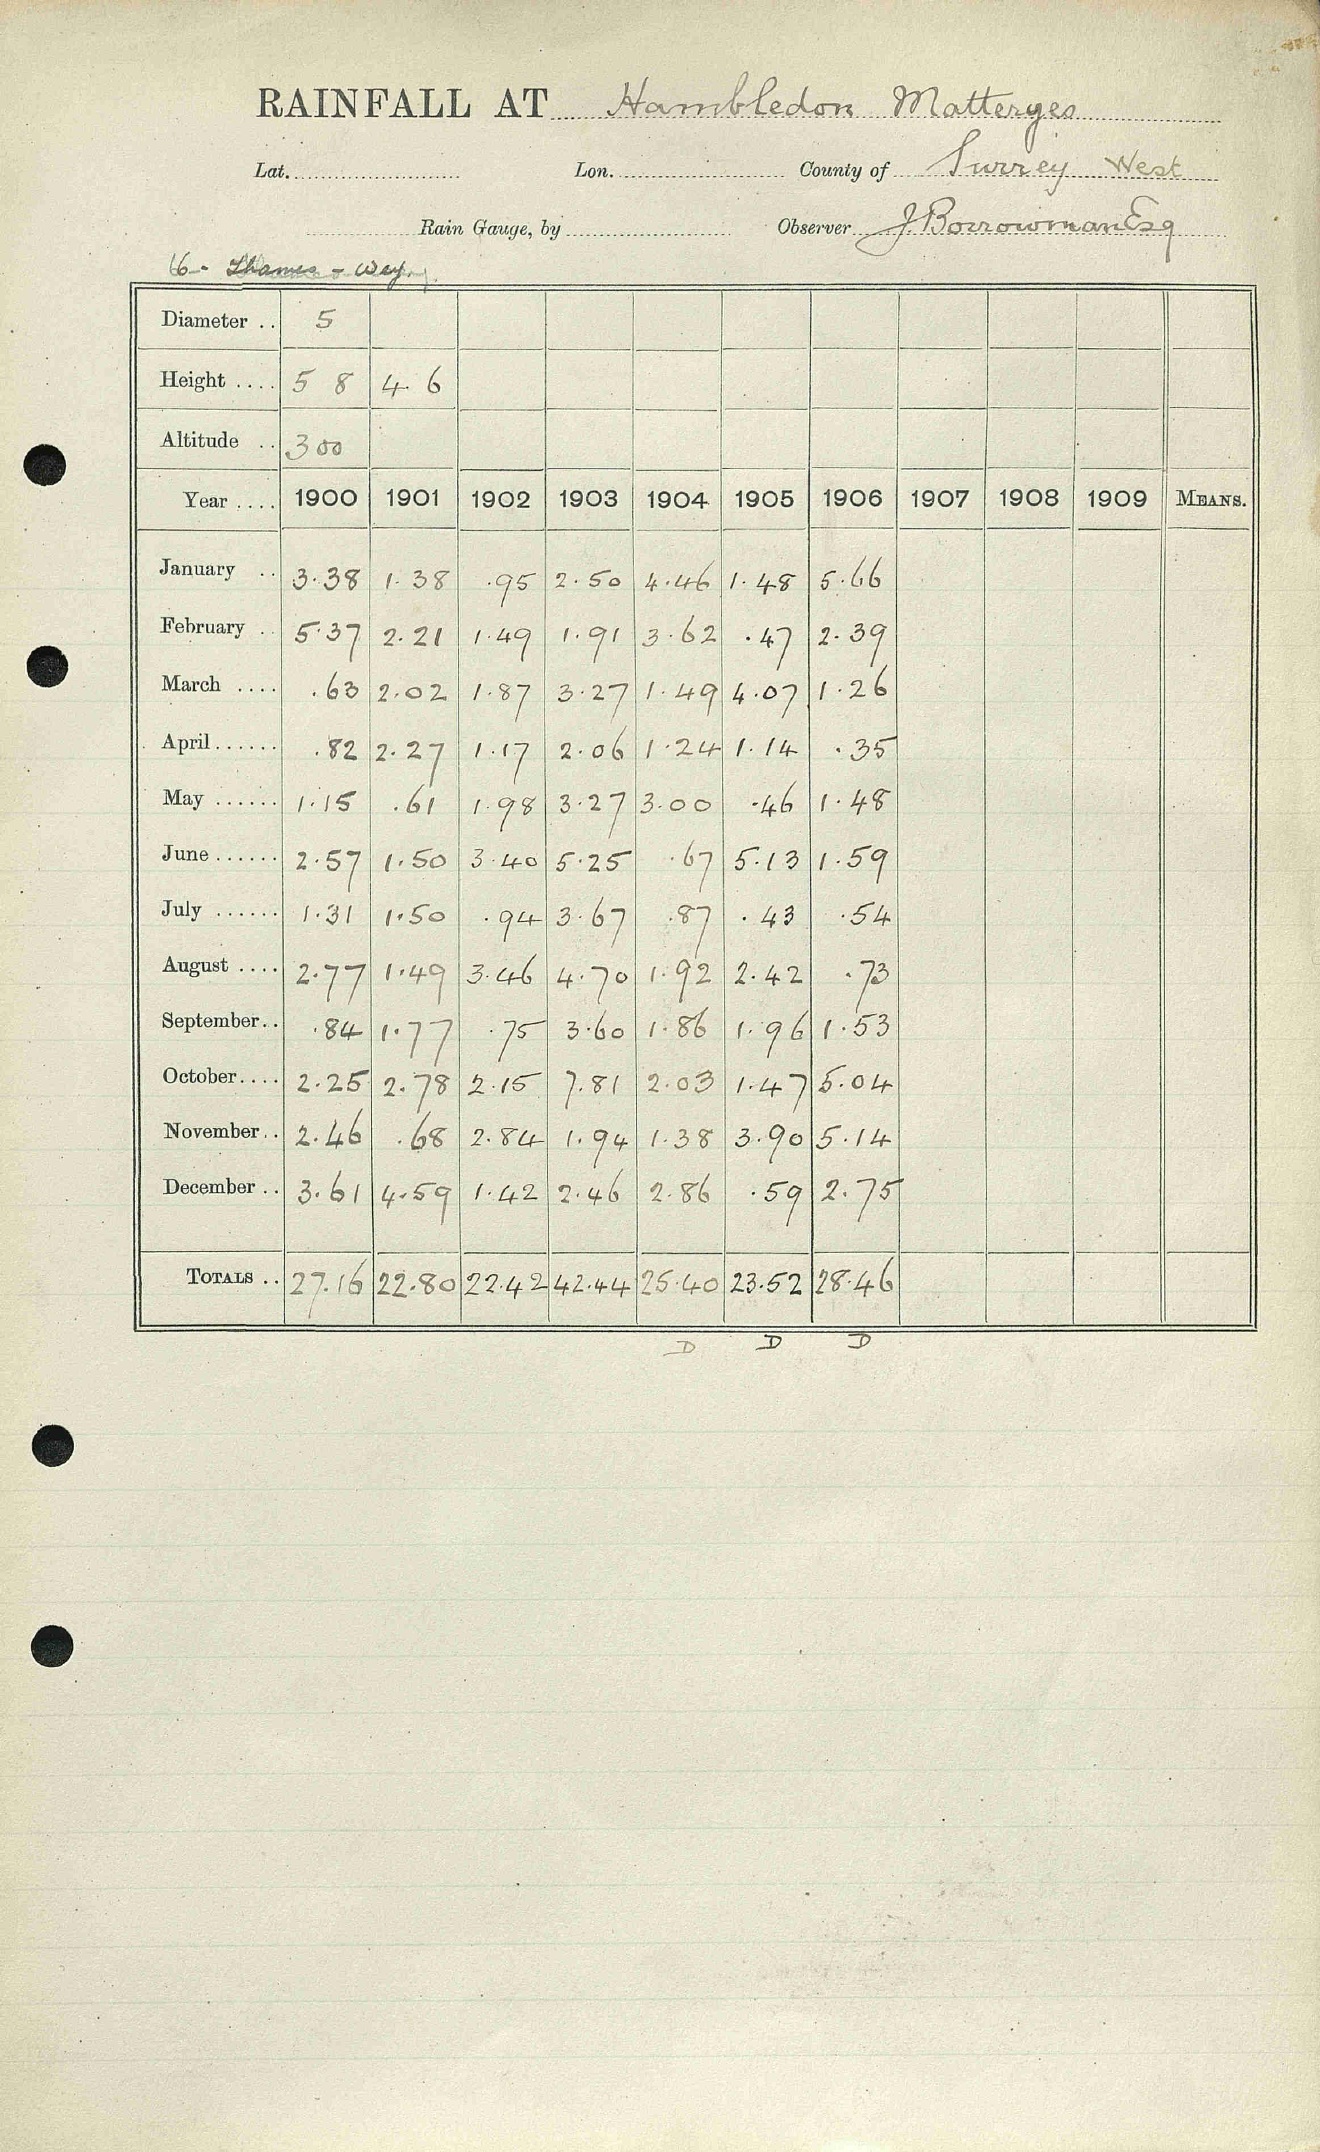 RAINFALL AT Hambledon Matteryes
Lat. Lon. County of Surrey West
Rain Gauge, by Observer J. Borrowman Esq
16 - Thames - Wey.
Diameter .. 5
Height .... 5 8 4 6
Altitude .. 300
Year .... 1900 1901 1902 1903 1904 1905 1906 1907 1908 1909 MEANS.
January .. 3.38 1.38 .95 2.50 4.46 1.48 5.66
February .. 5.37 2.21 1.49 1.91 3.62 .47 2.39
March .... .63 2.02 1.87 3.27 1.49 4.07 1.26
April ...... .82 2.27 1.17 2.06 1.24 1.14 .35
May ...... 1.15 .61 1.98 3.27 3.00 .46 1.48
June ...... 2.57 1.50 3.40 5.25 .67 5.13 1.59
July ...... 1.31 1.50 .94 3.67 .87 .43 .54
August .... 2.77 1.49 3.46 4.70 1.92 2.42 .73
September .. .84 1.77 .75 3.60 1.86 1.96 1.53
October .... 2.25 2.78 2.15 7.81 2.03 1.47 5.04
November .. 2.46 .68 2.84 1.94 1.38 3.90 5.14
December .. 3.61 4.59 1.42 2.46 2.86 .59 2.75
TOTALS .. 27.16 22.80 22.42 42.44 25.40 23.52 28.46
D D D